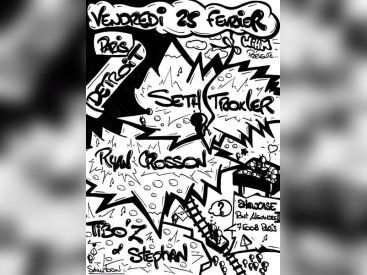 VENDREDI 25 FEVRIER
PARIS
DETROIT
SETH TROXLER
RYAN CROSSON
TIBO'Z
& STEPHAN
?
SHOWCASE
Pont Alexandre III
75008 PARIS